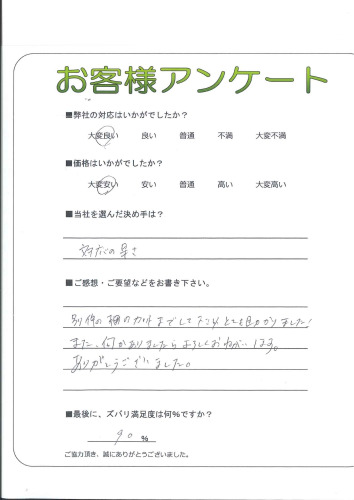 お客様アンケート
■弊社の対応はいかがでしたか?
大変良い 良い 普通 不満 大変不満
■価格はいかがでしたか?
大変安い 安い 普通 高い 大変高い
■当社を選んだ決め手は?
対応の早さ
■ご感想・ご要望などをお書き下さい。
別件の棚のカットまでして下さりとても良かったです!
また、何かありましたらよろしくおねがいします。
ありがとうございました。
■最後に、ズバリ満足度は何%ですか?
90 %
ご協力頂き、誠にありがとうございました。